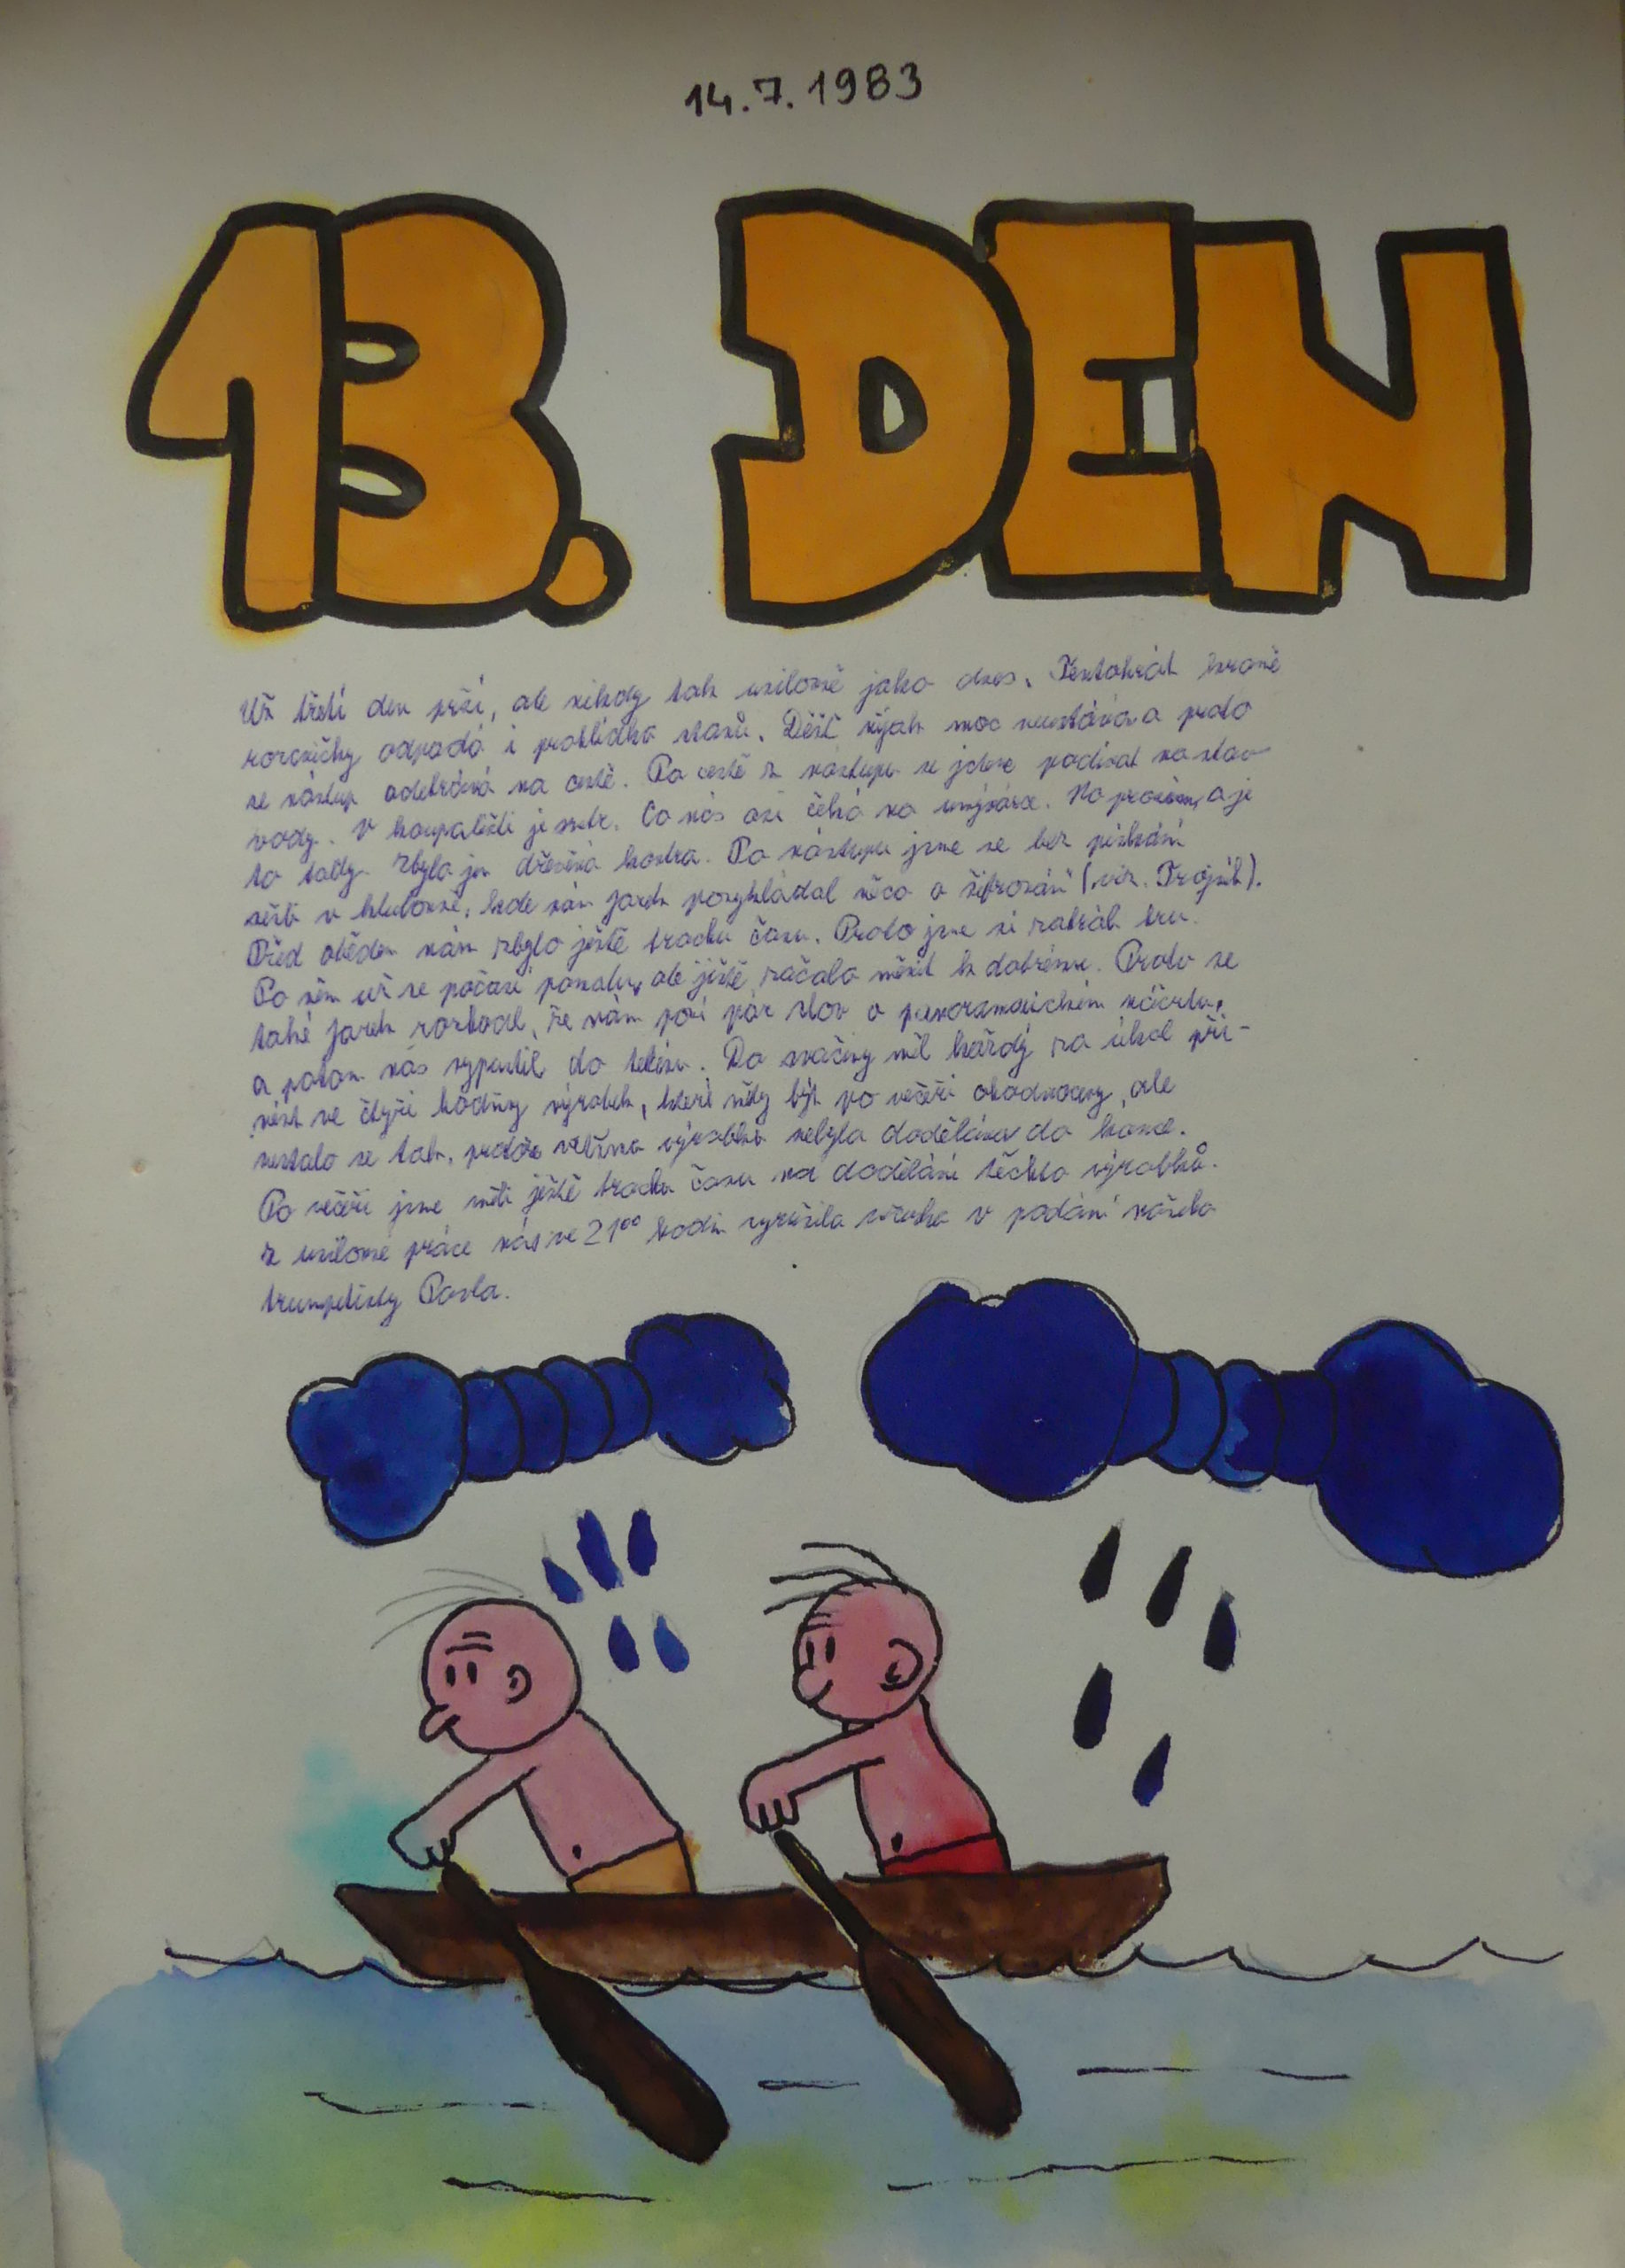 14.7.1983
13. DEN
Už třetí den prší, ale nikdy tak usilovně jako dnes. Tentokrát kromě
rozcvičky odpadá i prohlídka stanů. Déšť nijak moc neustává a proto
se nástup odebrává na cestě. Po cestě z nástupu se jdeme podívat na stav
vody. V koupališti je metr. Co nás asi čeká na umývárce. No prosím, a je
to tady. Zbyla jen dřevěná kostra. Po nástupu jsme se bez pískání
sešli v klubovně, kde nám Jarda povykládal něco o šifrování (viz. Trojúh).
Před obědem nám zbylo ještě trochu času. Proto jsme si zahráli hru.
Po něm už se počasí pomalu, ale jistě začalo měnit k dobrému. Proto se
také Jarek rozhodl, že nám poví pár slov o panoramatickém náčrtu,
a potom nás vypustil do terénu. Do svačiny měl každý za úkol při-
nést ve čtyři hodiny výrobek, které měly být po večeři ohodnoceny, ale
nestalo se tak, protože většina výrobků nebyla dodělána do konce.
Po večeři jsme měli ještě trochu času na dodělání těchto výrobků.
Z usilovné práce nás ve 21⁰⁰ hodin vyrušila večerka v podání našeho
trumpetisty Pavla.